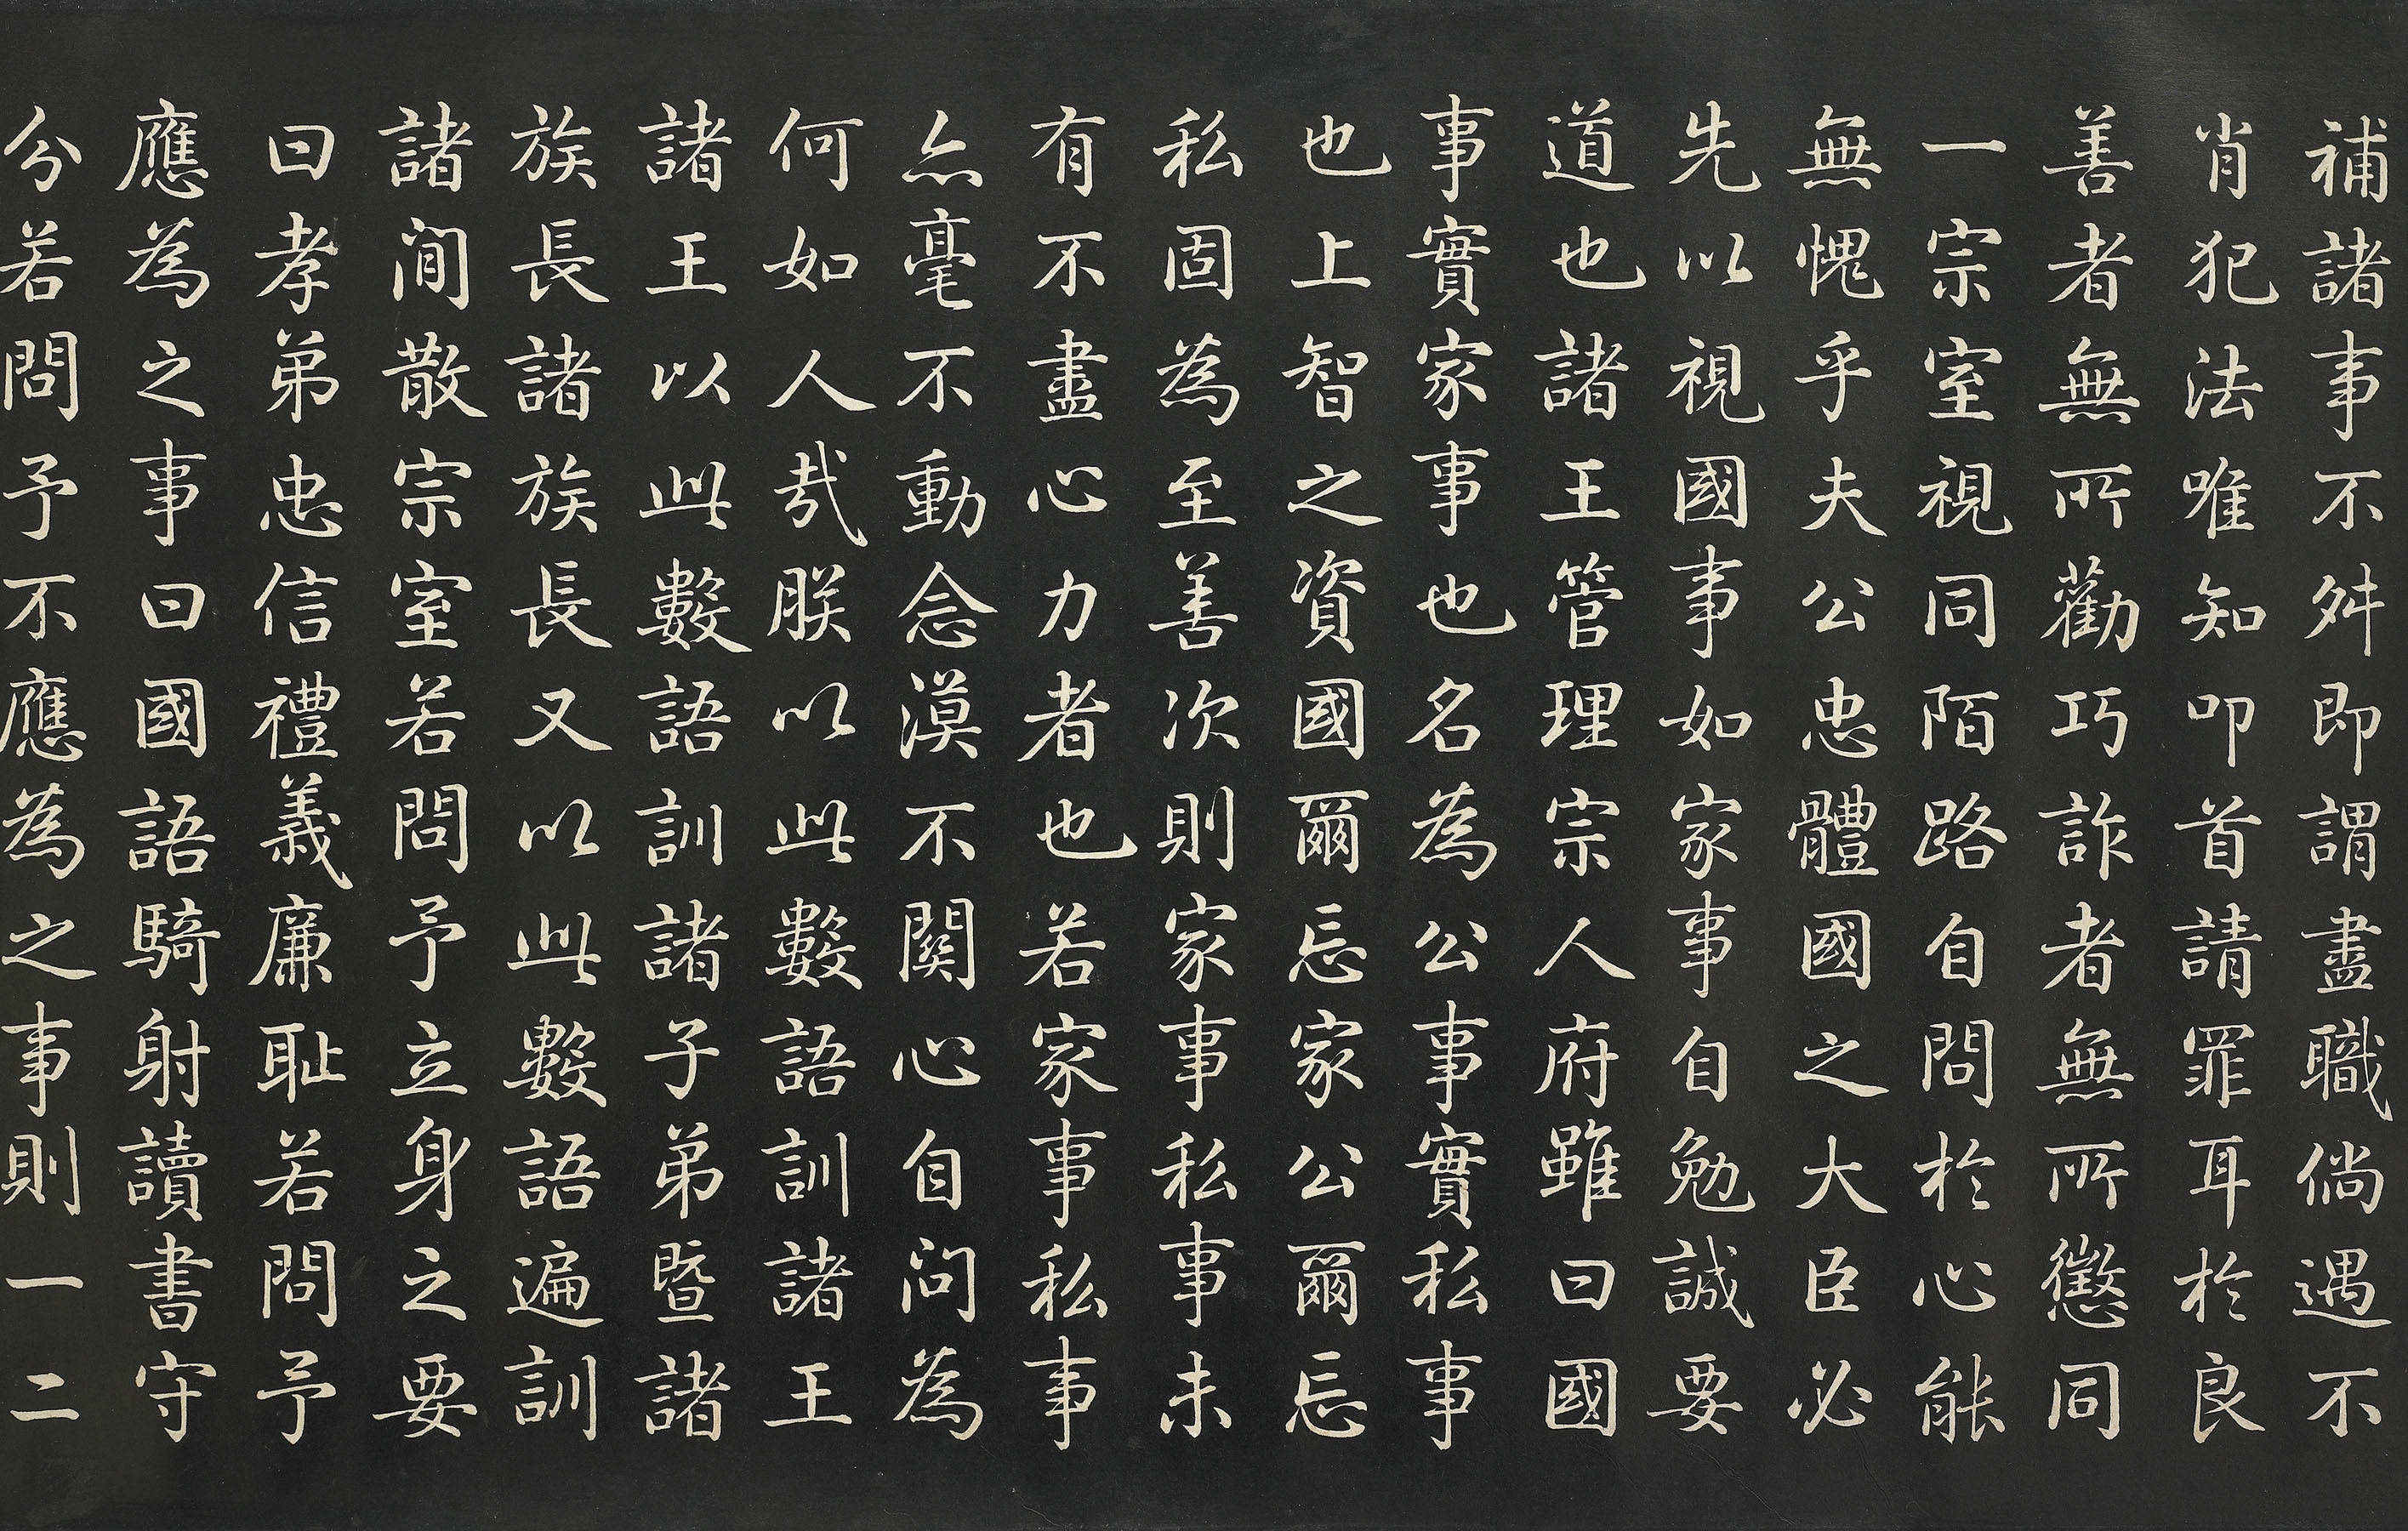 補諸事不舛即謂盡職倘遇不
肖犯法唯知叩首請罪耳於良
善者無所勸巧詐者無所懲同
一宗室視同陌路自問於心能
無愧乎夫公忠體國之大臣必
先以視國事如家事自勉誠要
道也諸王管理宗人府雖曰國
事實家事也名為公事實私事
也上智之資國爾忘家公爾忘
私固為至善次則家事私事未
有不盡心力者也若家事私事
亦毫不動念漠不關心自問為
何如人哉朕以此數語訓諸王
諸王以此數語訓諸子弟暨諸
族長諸族長又以此數語遍訓
諸閒散宗室若問予立身之要
曰孝弟忠信禮義廉恥若問予
應為之事曰國語騎射讀書守
分若問予不應為之事則一二